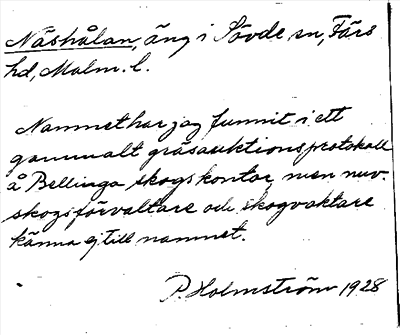 Näshålan, äng i Sövde sn, Färs
hd, Malm. l.
Namnet har jag funnit i ett
gammalt gräsauktionsprotokoll
å Bellinga skogskontor, men nuv.
skogsförvaltare och skogvaktare
känna ej till namnet.
P. Holmström 1928